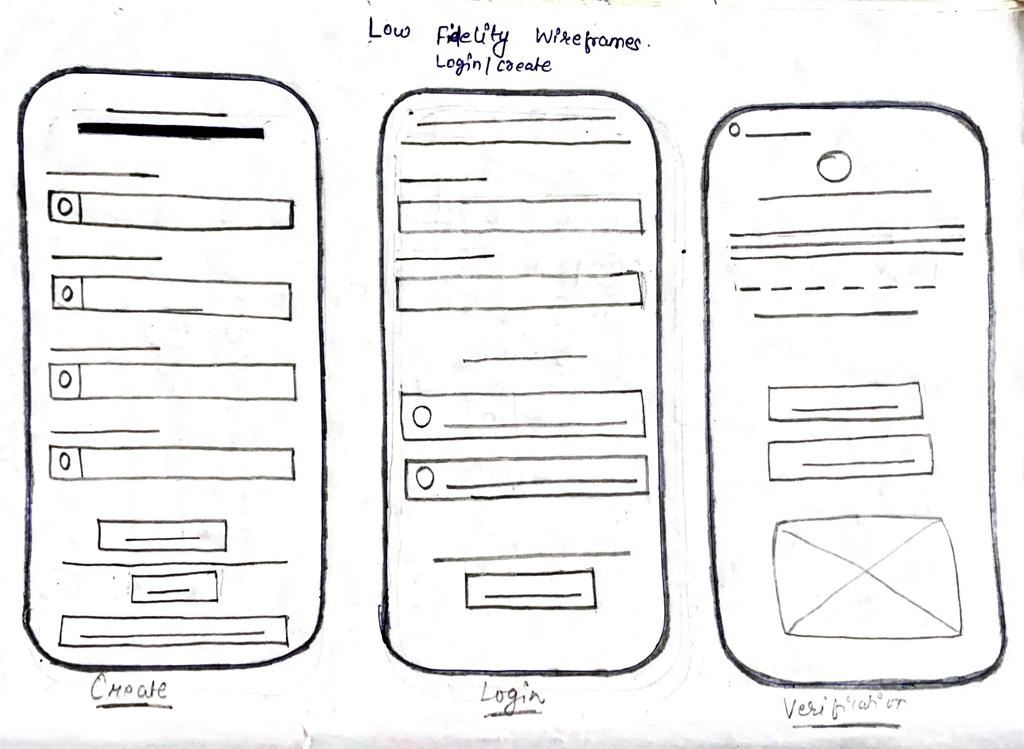 Low Fidelity Wireframes.
Login/create
Create
Login
Verification